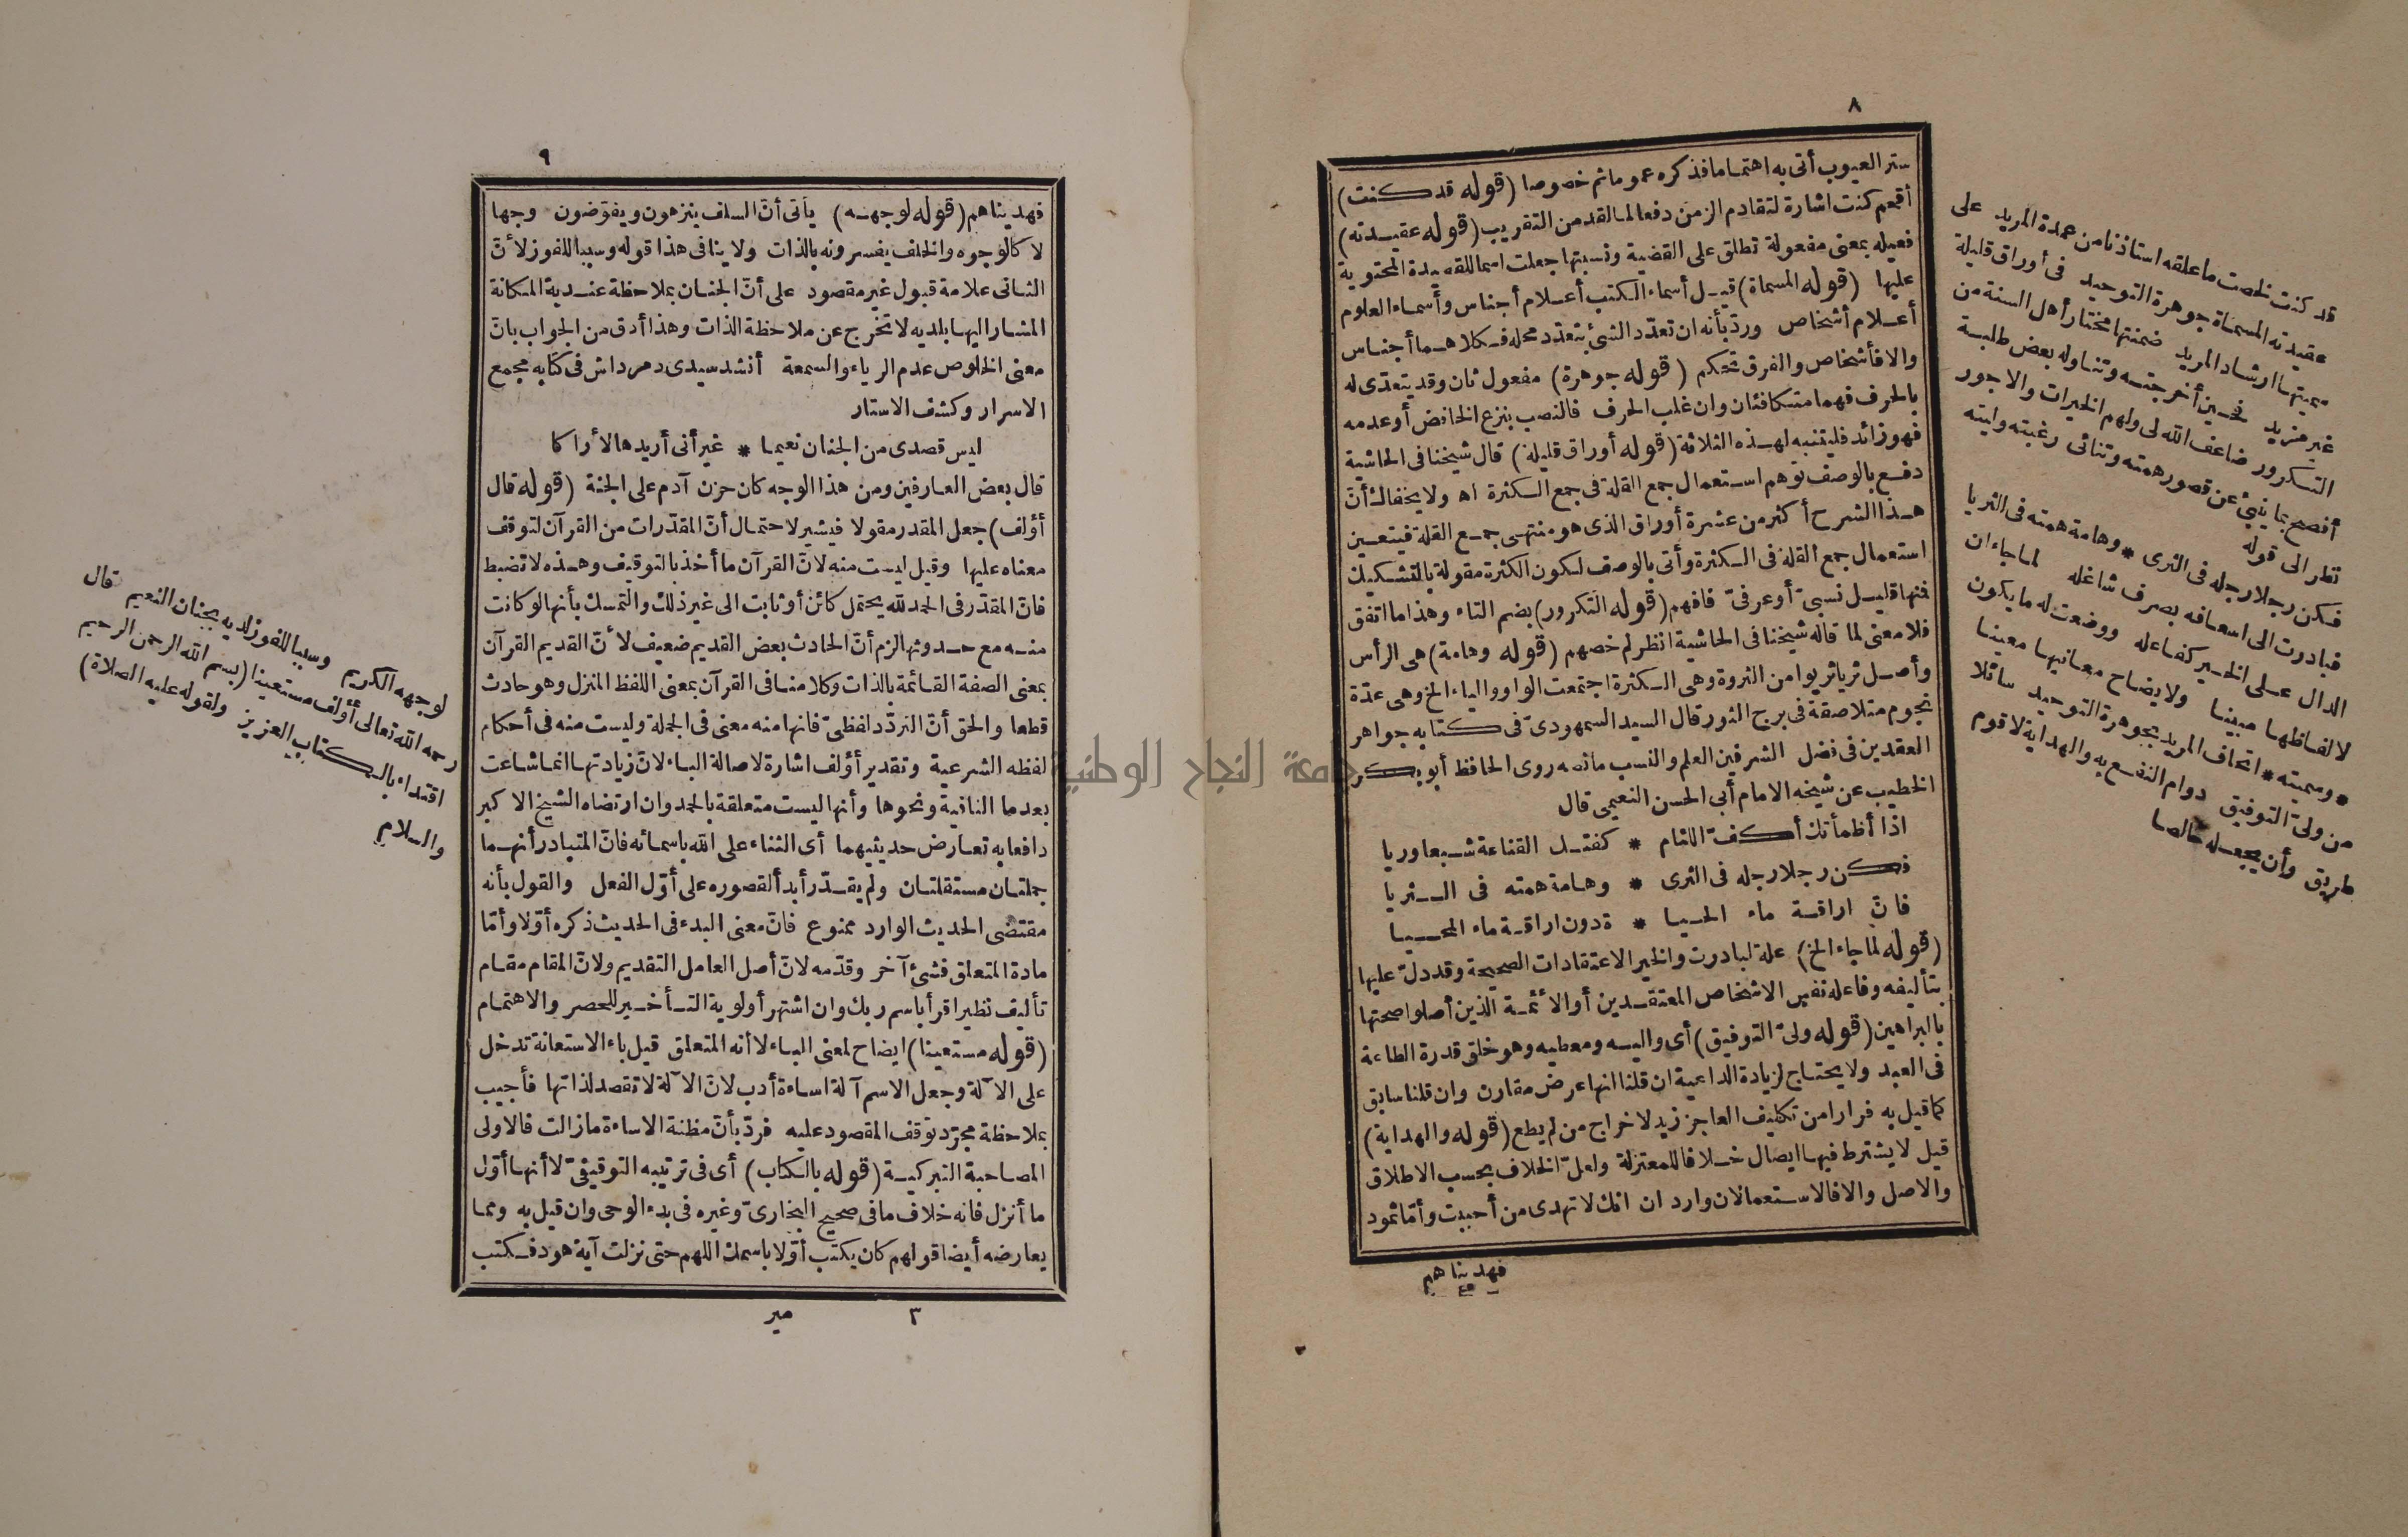 ٨
ستر العيوب أتى به اهتماما فذكره عموما ثم خصوصا (قوله قد كنت)
أقحم كنت اشارة لتقادم الزمن دفعا لما لقد من التقريب (قوله عقيدته)
فعيله بمعنى مفعولة تطلق على القضية ونسبتها جعلت اسما للقصيدة المحتوية
عليها (قوله المسماة) قيل أسماء الكتب أعلام أجناس وأسماء العلوم
أعلام أشخاص وردّ بأنه ان تعدّد الشئ بتعدّد محله فكلاهما أجناس
والا فأشخاص والفرق تحكم (قوله جوهرة) مفعول ثان وقد يتعدّى له
بالحرف فهما متكافئان وان غلب الحرف فالنصب بنزع الخافض أو عدمه
فهو زائد فليتنبه لهذه الثلاثة (قوله أوراق قليلة) قال شيخنا فى الحاشية
دفع بالوصف توهم استعمال جمع القلة فى جمع الكثرة اه ولا يخفاك أنّ
هذا الشرح أكثر من عشرة أوراق الذى هو منتهى جمع القلة فيتعين
استعمال جمع القلة فى الكثرة وأتى بالوصف لكون الكثرة مقولة بالتشكيك
فنها قليل نسبىّ أو عرفىّ فافهم (قوله التكرور) بضم التاء وهذا ما اتفق
فلا معنى لما قاله شيخنا فى الحاشية انظر لم خصهم (قوله وهامة) هى الرأس
وأصل ثريا ثريوا من الثروة وهى الكثرة اجتمعت الواو والياء الخ وهى عدّة
نجوم متلاصقة فى برج الثور قال السيد السمهودىّ فى كتابه جواهر
العقدين فى فضل الشرفين العلم والنسب ما نصه روى الحافظ أبو بكر
الخطيب عن شيخه الامام أبى الحسن النعيمى قال
اذا أظمأتك أكفّ اللئام * كفتك القناعة شبعا وريا
فكن رجلا رجله فى الثرى * وهامة همته فى الثريا
فانّ اراقة ماء الحيا * ة دون اراقة ماء المحيا
(قوله لما جاء الخ) علة لبادرت والخير الاعتقادات الصحيحة وقد دلّ عليها
بتأليفه وفاعله نفس الاشخاص المعتقدين أو الائمة الذين أصلوا صحتها
بالبراهين (قوله ولىّ التوفيق) أى واليه ومعطيه وهو خلق قدرة الطاعة
فى العبد ولا يحتاج لزيادة الداعية ان قلنا انها عرض مقارن وان قلنا سابق
كما قيل به فرارا من تكليف العاجز زيد لاخراج من لم يطع (قوله والهداية)
قيل لا يشترط فيها ايصال خلافا للمعتزلة ولعلّ الخلاف بحسب الاطلاق
والاصل والا فالاستعمالان وارد ان انك لا تهدى من أحببت وأمّا ثمود
فهديناهم
قد كنت لخصت ما علقه استاذنا من عمدة المريد على
عقيدته المسماة جوهرة التوحيد فى أوراق قليلة
سميتها ارشاد المريد ضمنتها مختار أهل السنة من
غير مزيد فحين أخرجته وتناوله بعض طلبة
التكرور ضاعف الله لى ولهم الخيرات والاجور
أفصح بما ينبئ عن قصور همته وتنائى رغبته وليته
نظر الى قوله
فكن رجلا رجله فى الثرى * وهامة همته فى الثريا
فبادرت الى اسعافه بصرف شاغله لما جاء ان
الدال على الخير كفاعله ووضعت له ما يكون
لالفاظها مبينا ولايضاح معانيها معينا
* وسميته * اتحاف المريد بجوهرة التوحيد سائلا
من ولىّ التوفيق دوام النفع به والهداية لاقوم
طريق وأن يجعله خالصا
٩
فهديناهم (قوله لوجهه) يأتى أنّ السلف ينزهون ويفوّضون وجها
لا كالوجوه والخلف يفسرونه بالذات ولا ينافى هذا قوله وسببا للفوز لأنّ
الثانى علامة قبول غير مقصود على أنّ الجنان بملاحظة عندية المكانة
المشار اليها بلديه لا تخرج عن ملاحظة الذات وهذا أدق من الجواب بانّ
معنى الخلوص عدم الرياء والسمعة أنشد سيدى دمرداش فى كتابه مجمع
الاسرار وكشف الاستار
ليس قصدى من الجنان نعيما * غير أنى أريدها لأراكا
قال بعض العارفين ومن هذا الوجه كان حزن آدم على الجنة (قوله قال
أؤلف) جعل المقدر مقولا فيشير لاحتمال أنّ المقدّرات من القرآن لتوقف
معناه عليها وقيل ليست منه لانّ القرآن ما أخذ بالتوقيف وهذه لا تضبط
فانّ المقدّر فى الحمد لله يحتمل كائن أو ثابت الى غير ذلك والتمسك بأنها لو كانت
منه مع حدوثها لزم أنّ الحادث بعض القديم ضعيف لأنّ القديم القرآن
بمعنى الصفة القائمة بالذات وكلامنا فى القرآن بمعنى اللفظ المنزل وهو حادث
قطعا والحق أنّ التردّد لفظىّ فانها منه معنى فى الجملة وليست منه فى أحكام
لفظه الشرعية وتقدير أؤلف اشارة لاصالة الباء لانّ زيادتها انما شاعت
بعد ما النافية ونحوها وأنها ليست متعلقة بالحمد وان ارتضاه الشيخ الاكبر
دافعا به تعارض حديثيهما أى الثناء على الله باسمائه فانّ المتبادر أنهما
جملتان مستقلتان ولم يقدّر أبدأ لقصوره على أوّل الفعل والقول بأنه
مقتضى الحديث الوارد ممنوع فانّ معنى البدء فى الحديث ذكره أوّلا وأمّا
مادة المتعلق فشئ آخر وقدّمه لانّ أصل العامل التقديم ولانّ المقام مقام
تأليف نظير اقرأ باسم ربك وان اشتهر أولوية التأخير للحصر والاهتمام
(قوله مستعينا) ايضاح لمعنى الباء لا أنه المتعلق قيل باء الاستعانة تدخل
على الآلة وجعل الاسم آلة اساءة أدب لانّ الآلة لا تقصد لذاتها فأجيب
بملاحظة مجرّد توقف المقصود عليه فردّ بأنّ مظنة الاساءة مازالت فالاولى
المصاحبة التبركية (قوله بالكتاب) أى فى ترتيبه التوقيفىّ لا أنها أوّل
ما أنزل فانه خلاف ما فى صحيح البخارىّ وغيره فى بدء الوحى وان قيل به ومما
يعارضه أيضا قولهم كان يكتب أوّلا باسمك اللهم حتى نزلت آية هود فكتب
٣ مير
لوجهه الكريم وسببا للفوز لديه بجنان النعيم قال
رحمه الله تعالى أؤلف مستعينا (بسم الله الرحمن الرحيم)
اقتداء بالكتاب العزيز ولقوله عليه الصلاة
والسلام
جامعة النجاح الوطنية